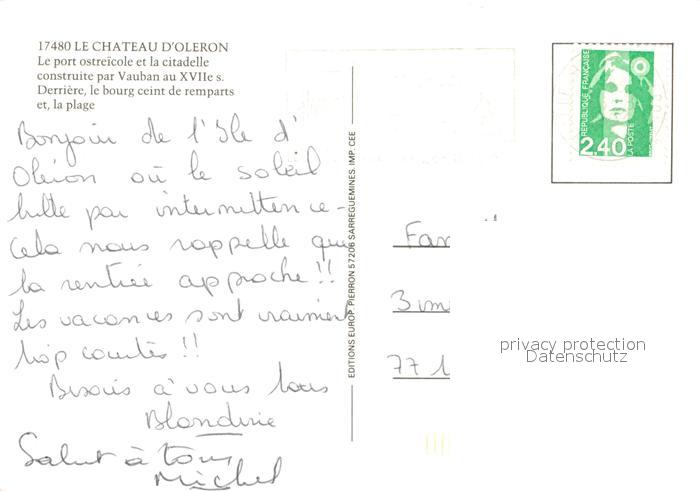 17480 LE CHATEAU D'OLERON
Le port ostreïcole et la citadelle
construite par Vauban au XVIIe s.
Derrière, le bourg ceint de remparts
et, la plage
Bonjour de l'Ile d'
Oléron où le soleil
brille par intermittence -
Cela nous rappelle que
la rentrée approche !!
Les vacances sont vraiment
trop courtes !!
Bisous à vous tous
Blondine
Salut à tous
Michel
EDITIONS EUROP. PIERRON 57206 SARREGUEMINES. IMP. CEE
REPUBLIQUE FRANÇAISE
LA POSTE
2,40
Fam
3 im
77 1
privacy protection
Datenschutz